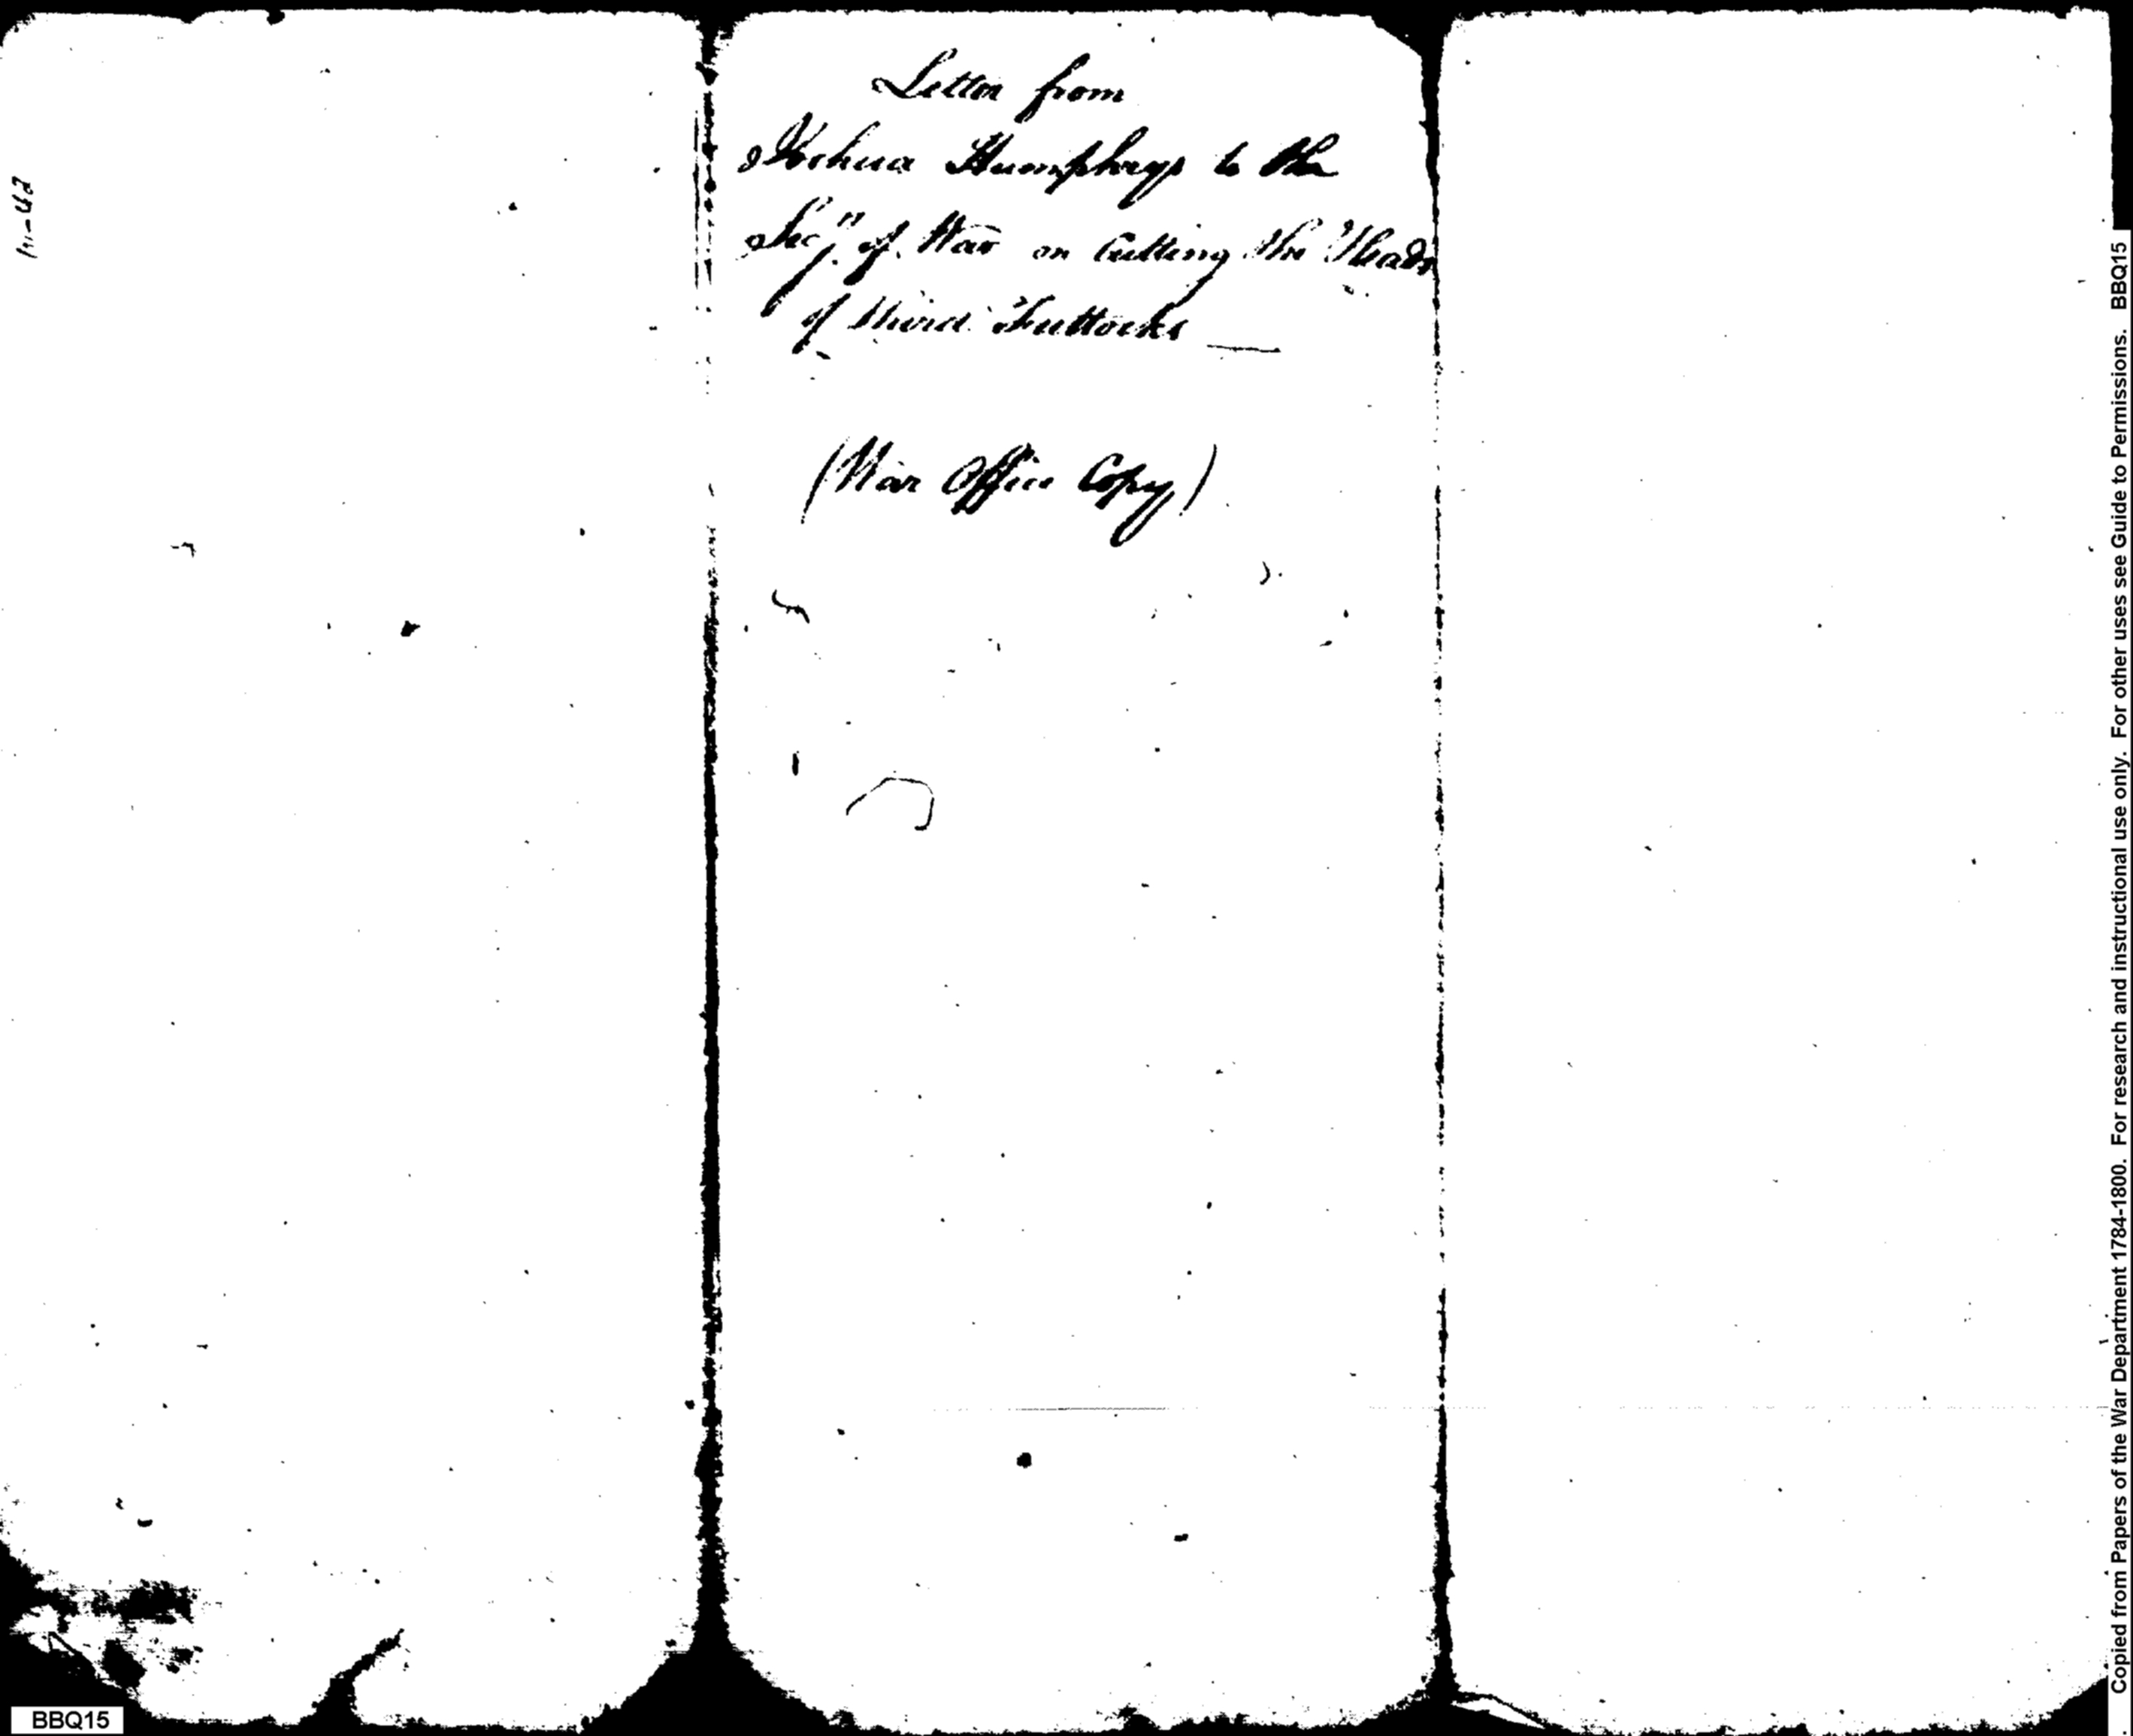 Letter from
Joshua Humphreys to the
Secy. of War on Cutting the Heads
of Third Futtocks
(War Office Copy)
BBQ15
Copied from Papers of the War Department 1784-1800. For research and instructional use only. For other uses see Guide to Permissions. BBQ15